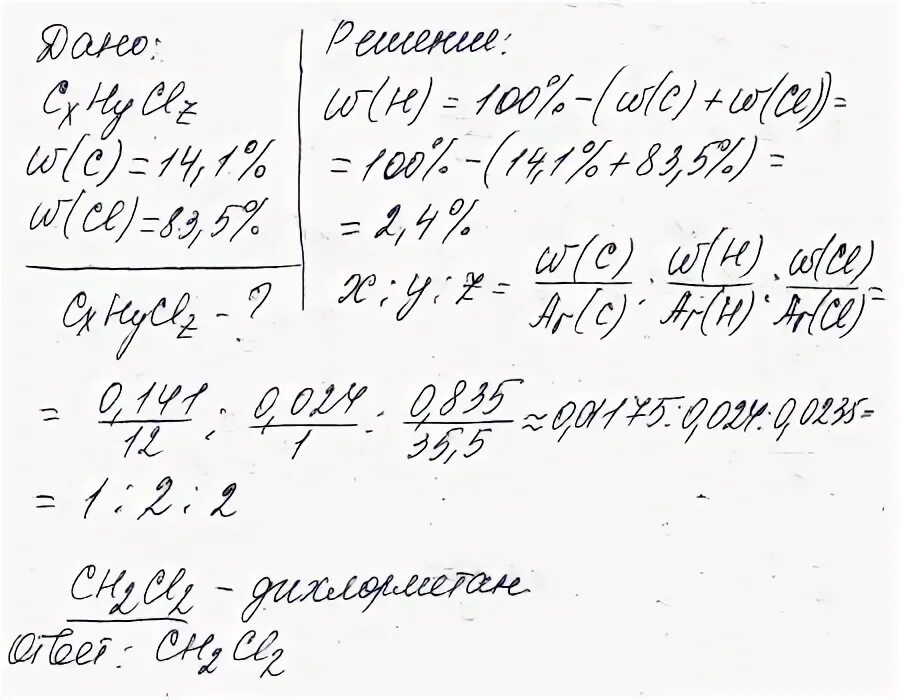 Дано:
CxHyClz
w(C) = 14,1%
w(Cl) = 83,5%
CxHyClz - ?
Решение:
w(H) = 100% - (w(C) + w(Cl)) =
= 100% - (14,1% + 83,5%) =
= 2,4%
x : y : z = w(C)/Ar(C) : w(H)/Ar(H) : w(Cl)/Ar(Cl) =
= 0,141/12 : 0,024/1 : 0,835/35,5 ≈ 0,01175 : 0,024 : 0,0235 =
= 1 : 2 : 2
CH₂Cl₂ - дихлорметан
Ответ: CH₂Cl₂